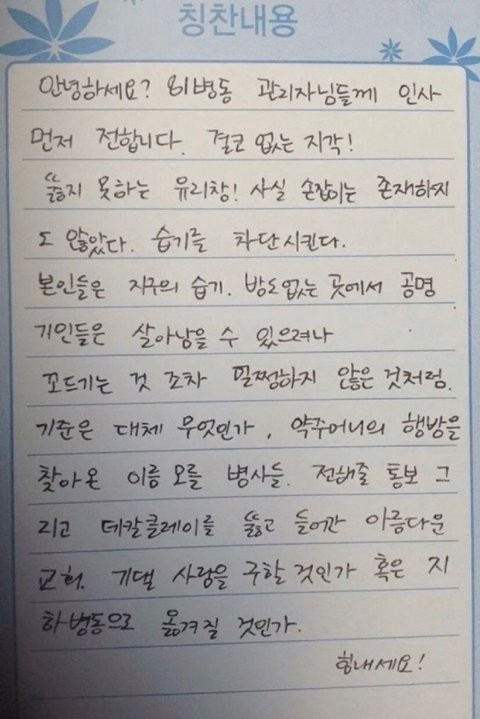 칭찬내용
안녕하세요? 81병동 관리자님들께 인사
먼저 전합니다. 결코 없는 지각!
뚫지 못하는 유리창! 사실 손잡이는 존재하지
도 않았다. 습기를 차단시킨다.
본인들은 지구의 습기. 방도없는 곳에서 공명
기인들은 살아남을 수 있으려나
꼬드기는 것 조차 멀쩡하지 않은 것처럼.
기준은 대체 무엇인가, 약주머니의 행방을
찾아온 이름 모를 병사들. 전해줄 통보 그
리고 데칼클레이를 뚫고 들어간 아름다운
교회. 기댈 사랑을 구할 것인가 혹은 지
하병동으로 옮겨질 것인가.
힘내세요!